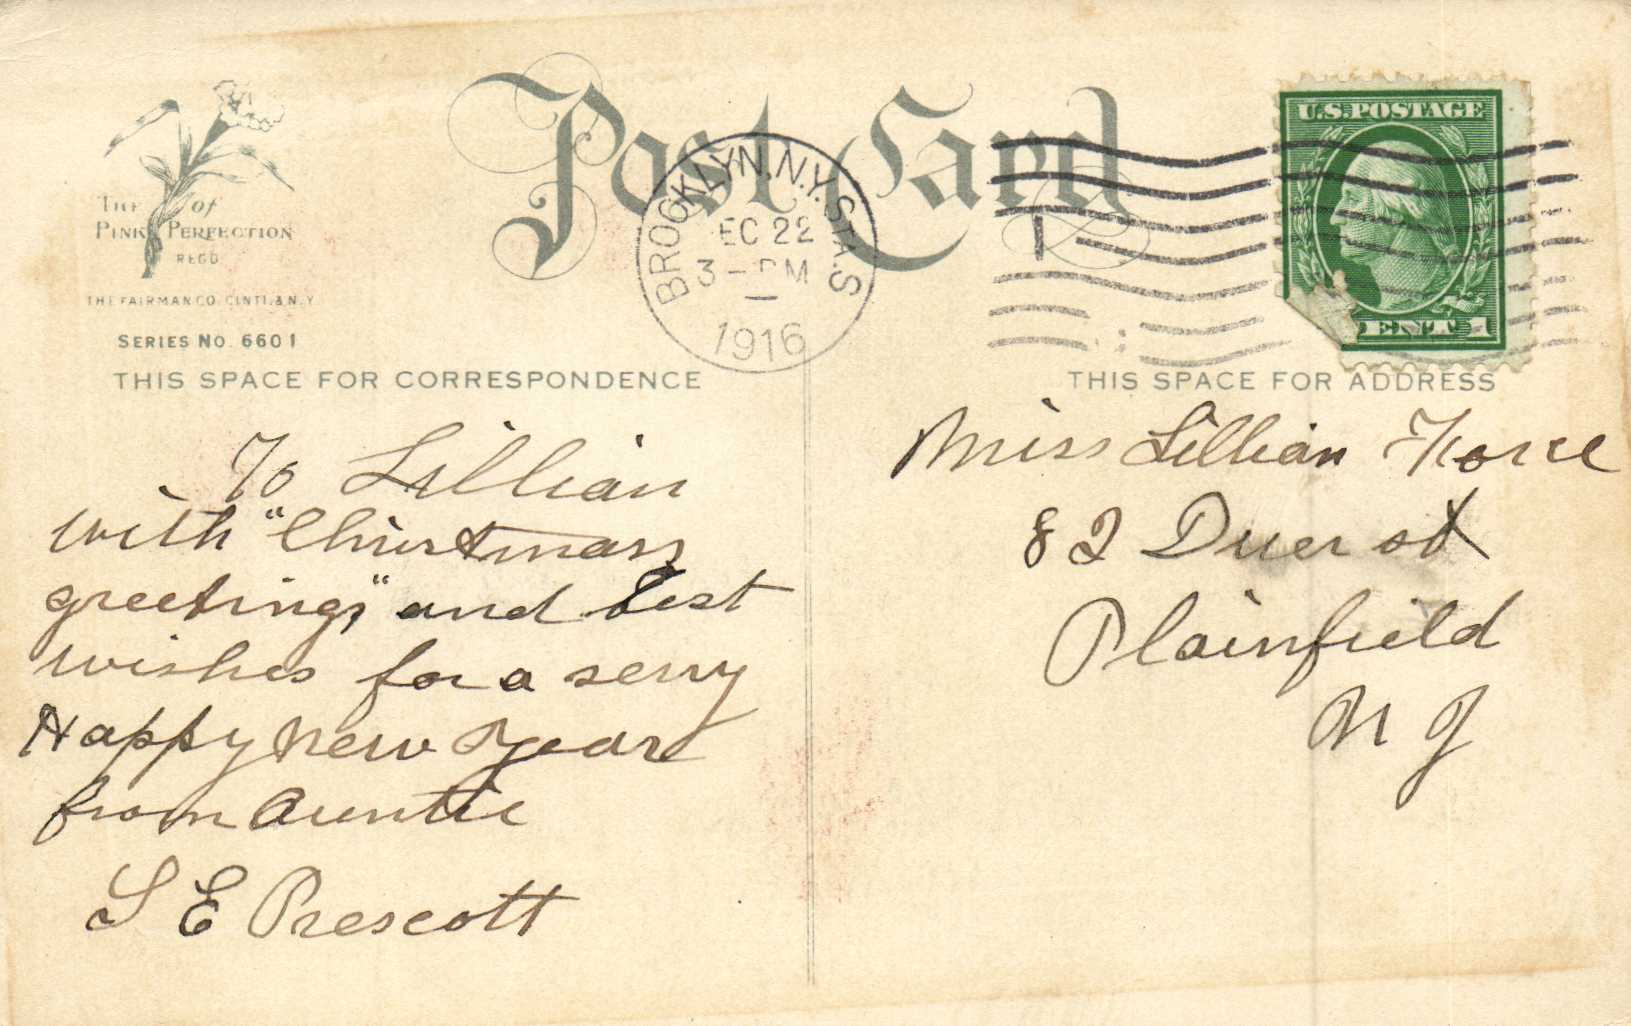 Post Card
U.S. POSTAGE
BROOKLYN, N.Y. STA. S
EC 22
3 - PM
1916
THE of
PINK PERFECTION
REGD
THE FAIRMAN CO. CINTI. & N.Y.
SERIES NO. 6601
ENT 1
THIS SPACE FOR CORRESPONDENCE
To Lillian
with "Christmas
greetings" and best
wishes for a
Happy New Year
from Auntie
S E Prescott
THIS SPACE FOR ADDRESS
Miss Lillian Force
82 Duer st
Plainfield
N J